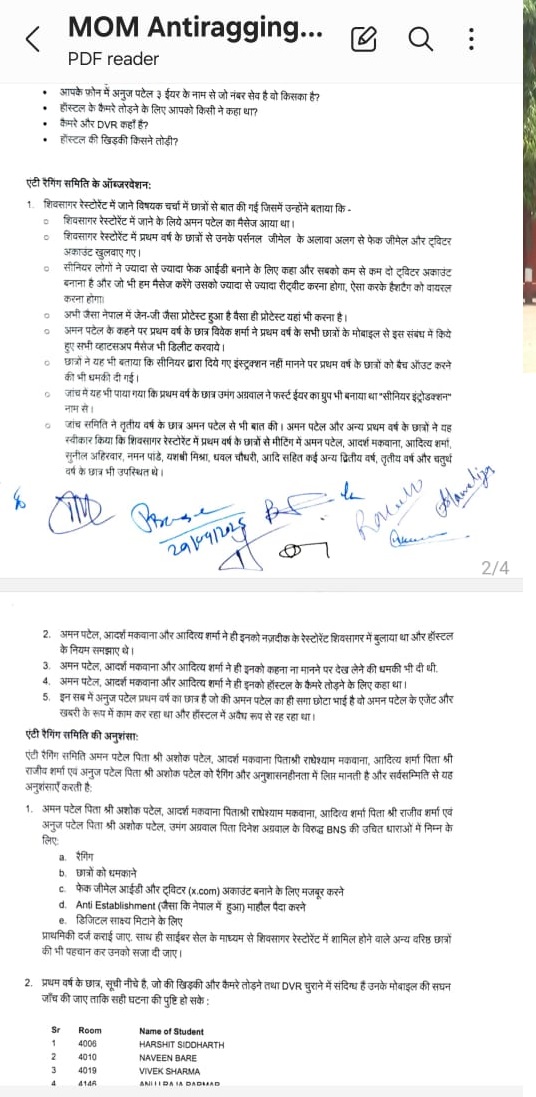 MOM Antiragging...
PDF reader
• आपके फ़ोन में अनुज पटेल ३ ईयर के नाम से जो नंबर सेव है वो किसका है?
• हॉस्टल के कैमरे तोड़ने के लिए आपको किसी ने कहा था?
• कैमरे और DVR कहाँ हैं?
• हॉस्टल की खिड़की किसने तोड़ी?
एंटी रैगिंग समिति के ऑब्जरवेशन:
1. शिवसागर रेस्टोरेंट में जाने विषयक चर्चा में छात्रों से बात की गई जिसमें उन्होंने बताया कि -
○ शिवसागर रेस्टोरेंट में जाने के लिये अमन पटेल का मैसेज आया था।
○ शिवसागर रेस्टोरेंट में प्रथम वर्ष के छात्रों से उनके पर्सनल जीमेल के अलावा अलग से फेक जीमेल और ट्विटर
अकाउंट खुलवाए गए।
○ सीनियर लोगों ने ज्यादा से ज्यादा फेक आईडी बनाने के लिए कहा और सबको कम से कम दो ट्विटर अकाउंट
बनाना है और जो भी हम मैसेज करेंगे उसको ज्यादा से ज्यादा रीट्वीट करना होगा, ऐसा करके हैशटैग को वायरल
करना होगा।
○ अभी जैसा नेपाल में जेन-जी जैसा प्रोटेस्ट हुआ है वैसा ही प्रोटेस्ट यहां भी करना है।
○ अमन पटेल के कहने पर प्रथम वर्ष के छात्र विवेक शर्मा ने प्रथम वर्ष के सभी छात्रों के मोबाइल से इस संबध में किये
हुए सभी व्हाटसअप मैसेज भी डिलीट करवाये।
○ छात्रों ने यह भी बताया कि सीनियर द्वारा दिये गए इंस्ट्रक्शन नहीं मानने पर प्रथम वर्ष के छात्रों को बैच ऑउट करने
की भी धमकी दी गई।
○ जांच में यह भी पाया गया कि प्रथम वर्ष के छात्र उमंग अग्रवाल ने फर्स्ट ईयर का ग्रुप भी बनाया था "सीनियर इंट्रोडक्शन"
नाम से।
○ जांच समिति ने तृतीय वर्ष के छात्र अमन पटेल से भी बात की। अमन पटेल और अन्य प्रथम वर्ष के छात्रों ने यह
स्वीकार किया कि शिवसागर रेस्टोरेंट में प्रथम वर्ष के छात्रों से मीटिंग में अमन पटेल, आदर्श मकवाना, आदित्य शर्मा,
सुनील अहिरवार, नमन पांडे, यशश्री मिश्रा, धवल चौधरी, आदि सहित कई अन्य द्वितीय वर्ष, तृतीय वर्ष और चतुर्थ
वर्ष के छात्र भी उपस्थित थे।
29/09/2025
2/4
2. अमन पटेल, आदर्श मकवाना और आदित्य शर्मा ने ही इनको नज़दीक के रेस्टोरेंट शिवसागर में बुलाया था और हॉस्टल
के नियम समझाए थे।
3. अमन पटेल, आदर्श मकवाना और आदित्य शर्मा ने ही इनको कहना ना मानने पर देख लेने की धमकी भी दी थी.
4. अमन पटेल, आदर्श मकवाना और आदित्य शर्मा ने ही इनको हॉस्टल के कैमरे तोड़ने के लिए कहा था।
5. इन सब में अनुज पटेल प्रथम वर्ष का छात्र है जो की अमन पटेल का ही सगा छोटा भाई है वो अमन पटेल के एजेंट और
खबरी के रूप में काम कर रहा था और हॉस्टल में अवैध रूप से रह रहा था।
एंटी रैगिंग समिति की अनुशंसा:
एंटी रैगिंग समिति अमन पटेल पिता श्री अशोक पटेल, आदर्श मकवाना पिताश्री राधेश्याम मकवाना, आदित्य शर्मा पिता श्री
राजीव शर्मा एवं अनुज पटेल पिता श्री अशोक पटेल को रैगिंग और अनुशासनहीनता में लिप्त मानती है और सर्वसम्मिति से यह
अनुशंसाएँ करती है:
1. अमन पटेल पिता श्री अशोक पटेल, आदर्श मकवाना पिताश्री राधेश्याम मकवाना, आदित्य शर्मा पिता श्री राजीव शर्मा एवं
अनुज पटेल पिता श्री अशोक पटेल, उमंग अग्रवाल पिता दिनेश अग्रवाल के विरुद्ध BNS की उचित धाराओं में निम्न के
लिए:
a. रैगिंग
b. छात्रों को धमकाने
c. फेक जीमेल आईडी और ट्विटर (x.com) अकाउंट बनाने के लिए मजबूर करने
d. Anti Establishment (जैसा कि नेपाल में हुआ) माहौल पैदा करने
e. डिजिटल साक्ष्य मिटाने के लिए
प्राथमिकी दर्ज कराई जाए. साथ ही साईबर सेल के माध्यम से शिवसागर रेस्टोरेंट में शामिल होने वाले अन्य वरिष्ठ छात्रों
की भी पहचान कर उनको सजा दी जाए।
2. प्रथम वर्ष के छात्र, सूची नीचे है, जो की खिड़की और कैमरे तोड़ने तथा DVR चुराने में संदिग्ध हैं उनके मोबाइल की सघन
जाँच की जाए ताकि सही घटना की पुष्टि हो सके :
Sr Room Name of Student
1 4006 HARSHIT SIDDHARTH
2 4010 NAVEEN BARE
3 4019 VIVEK SHARMA
4 4146